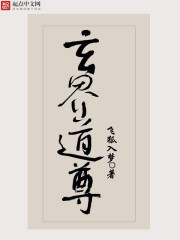 起点中文网
玄界道尊
飞狐入梦◎著